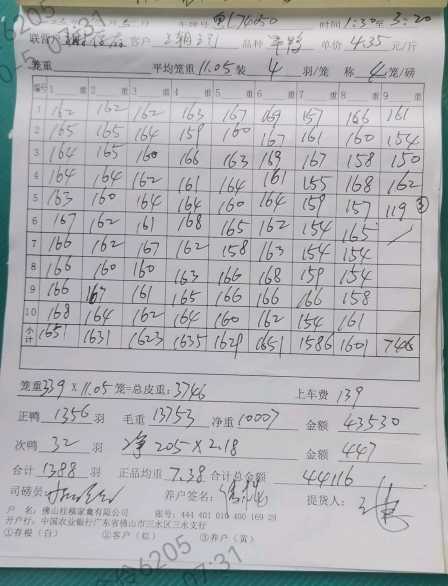 车牌号 粤L74050 时间 1:30至3:20
联营 客户 品种 单价 4.35 元/斤
笼重 平均笼重 11.05 装 4 羽/笼 称 4 笼/磅
编号 1 重 2 重 3 重 4 重 5 重 6 重 7 重 8 重 9 重
1 162 162 162 163 167 169 157 166 161
2 165 165 164 159 160 167 161 160 154
3 164 165 160 166 163 169 167 158 150
4 164 164 162 161 164 161 155 168 162
5 163 160 164 164 160 164 159 157 119 ③
6 167 162 161 168 165 162 154 165
7 166 162 167 162 158 163 154 154
8 166 160 160 163 166 168 159 154
9 166 167 161 165 166 166 166 158
10 168 164 162 164 160 162 154 161
小计 1651 1631 1623 1635 1629 1651 1586 1601 746
笼重 339 X 11.05 笼=总皮重: 3746 上车费 139
正鸭 1356 羽 毛重 13753 净重 10007 金额 43530
次鸭 32 羽 净 205 X 2.18 金额 447
合计 1388 羽 正品均重 7.38 合计总金额 44116
司磅员: 养户签名: 提货人:
户 名: 佛山桂模家禽有限公司 账号: 444 401 010 400 169 29
开户行: 中国农业银行广东省佛山市三水区三水支行
①存根(白) ②客户(红) ③养户(黄)
6205
07:31